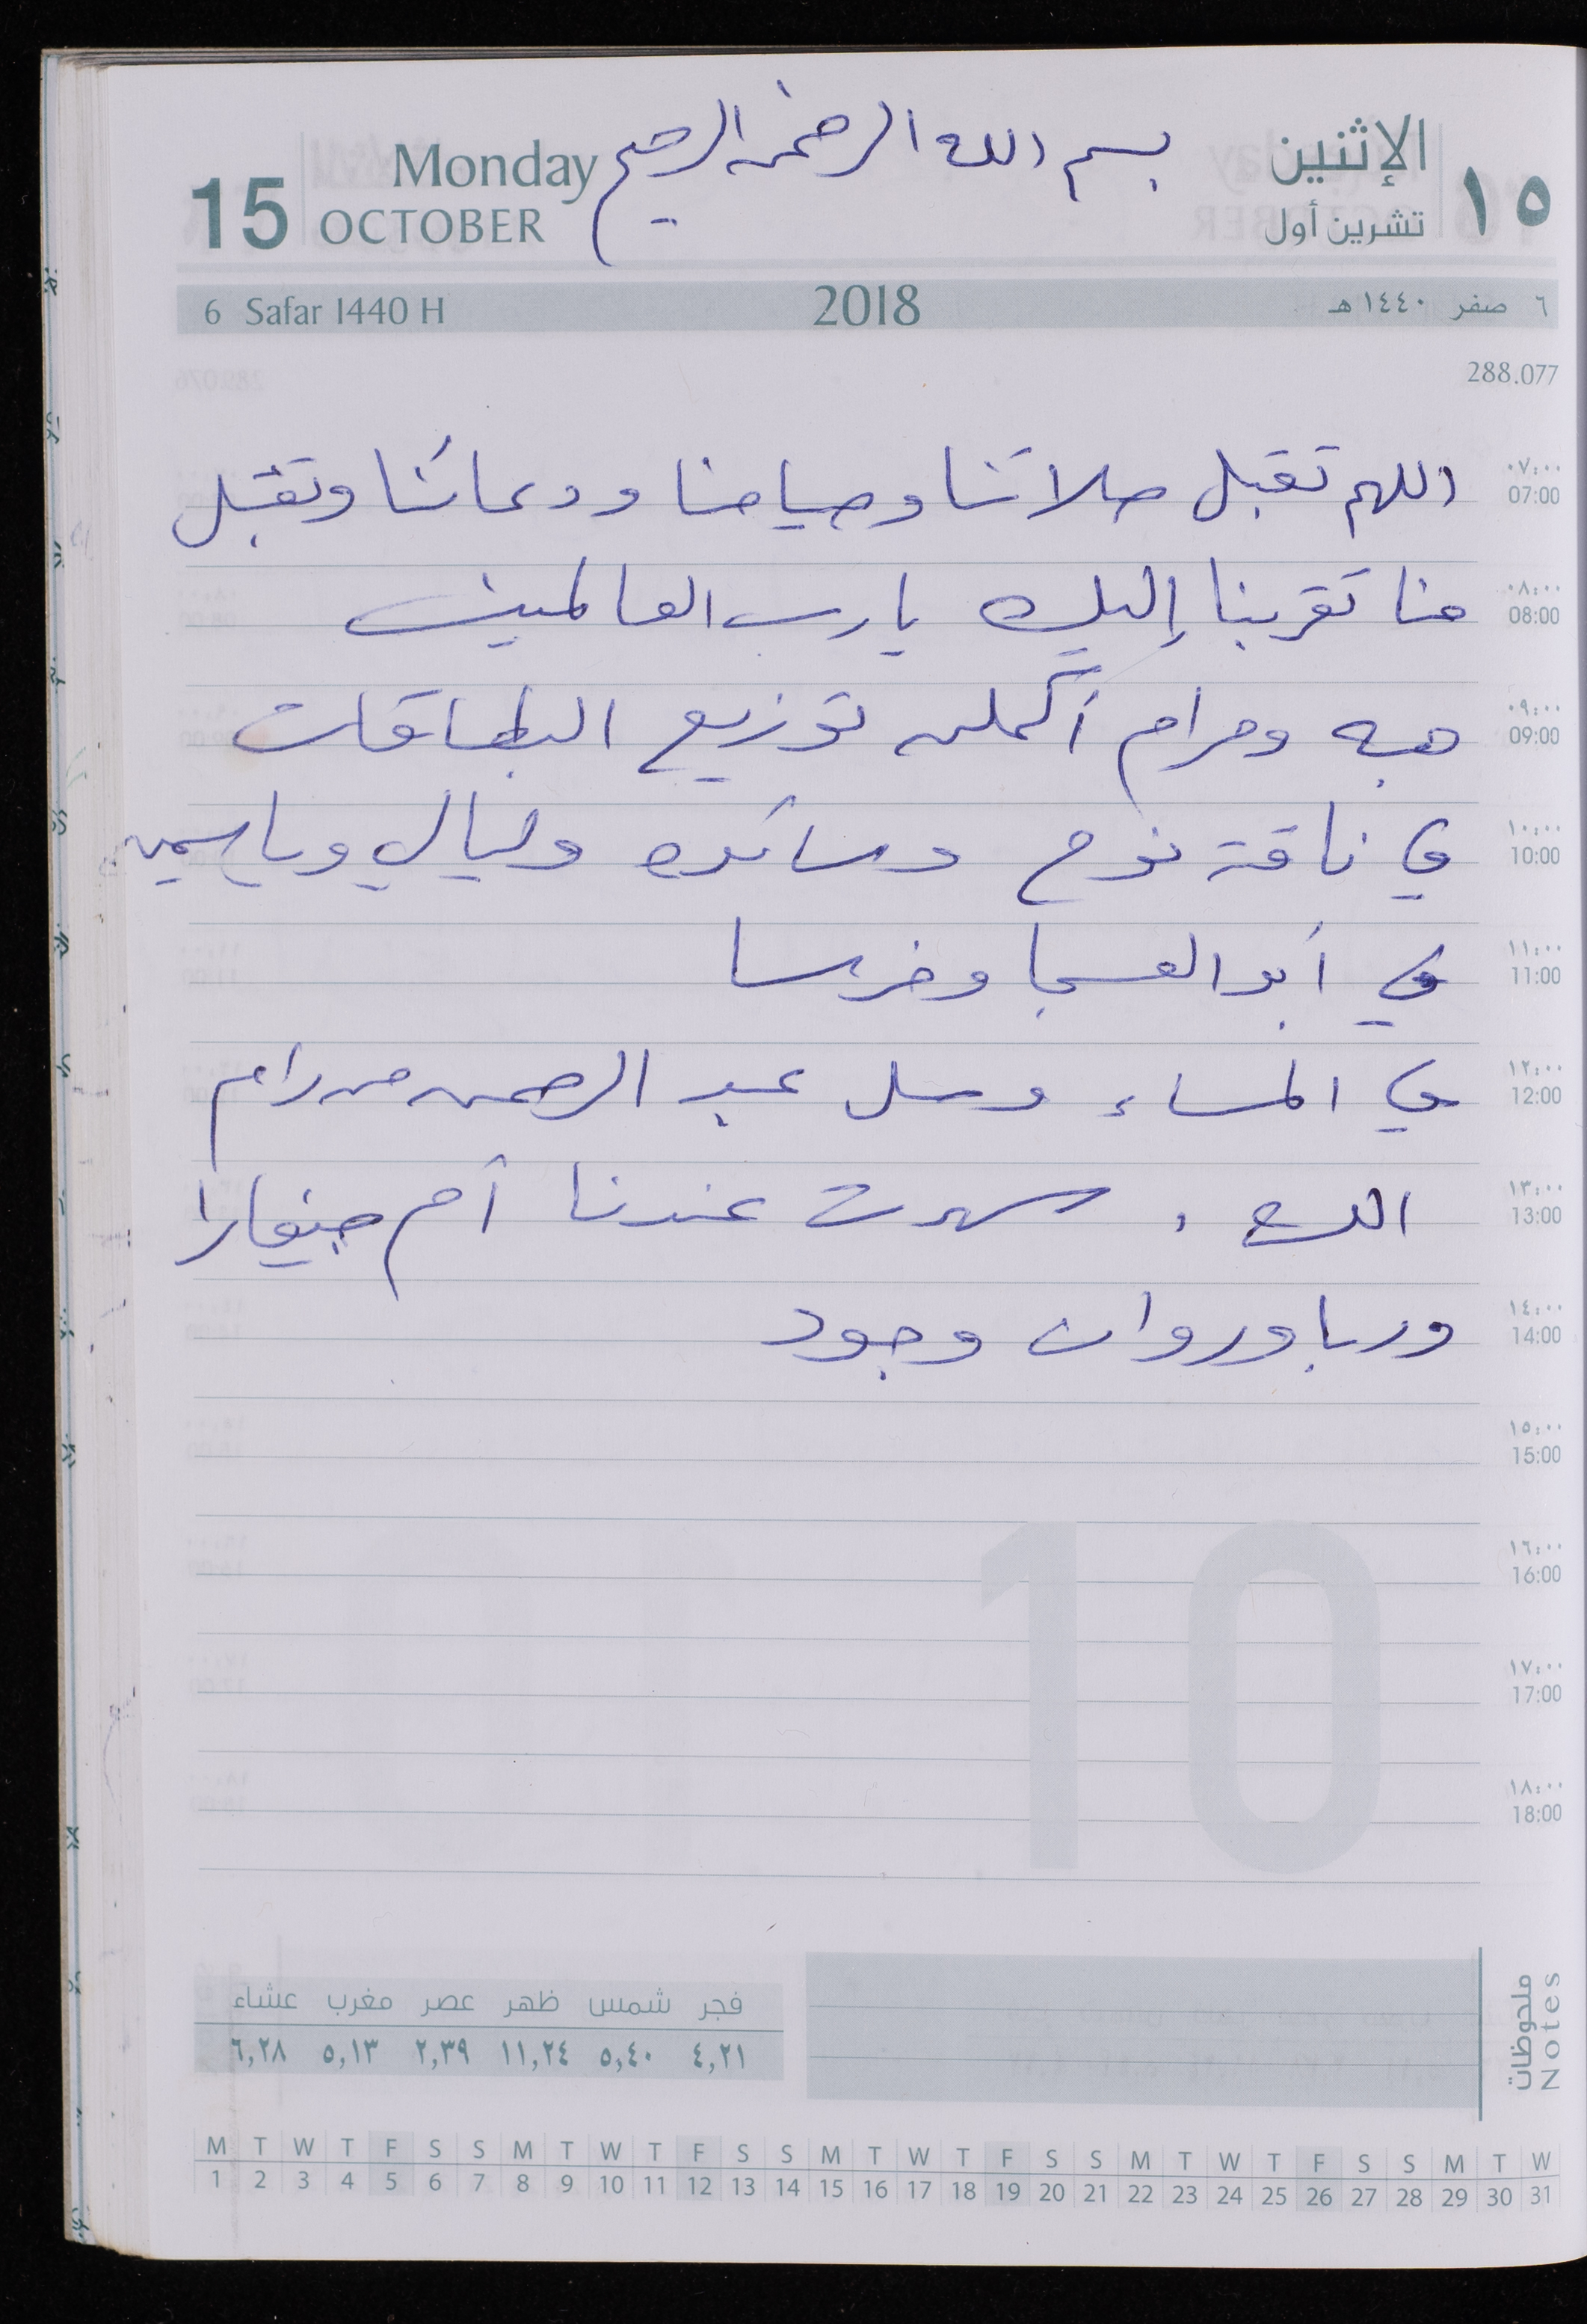 بسم الله الرحمن الرحيم
الإثنين
١٥
تشرين أول
Monday
15
OCTOBER
6 Safar 1440 H
2018
٦ صفر ١٤٤٠ هـ
288.077
٠٧:٠٠
07:00
اللهم تقبل صلاتنا وصيامنا ودعائنا وتقبل
٠٨:٠٠
08:00
منا تقربنا إليك يا رب العالمين
٠٩:٠٠
09:00
هبه ومرام أكملن توزيع البطاقات
١٠:٠٠
10:00
في ناقة نوح وسائده وليالي وياسمين
١١:٠٠
11:00
في أبو العسجا وخرسا
١٢:٠٠
12:00
في المساء وصل عبد الرحمن من رام
١٣:٠٠
13:00
الله . سهرت عندنا أم جيفارا
١٤:٠٠
14:00
وربا وروان وجود
١٥:٠٠
15:00
١٦:٠٠
16:00
١٧:٠٠
17:00
١٨:٠٠
18:00
10
ملحوظات
Notes
فجر شمس ظهر عصر مغرب عشاء
٤,٢١ ٥,٤٠ ١١,٢٤ ٢,٣٩ ٥,١٣ ٦,٢٨
M T W T F S S M T W T F S S M T W T F S S M T W T F S S M T W
1 2 3 4 5 6 7 8 9 10 11 12 13 14 15 16 17 18 19 20 21 22 23 24 25 26 27 28 29 30 31